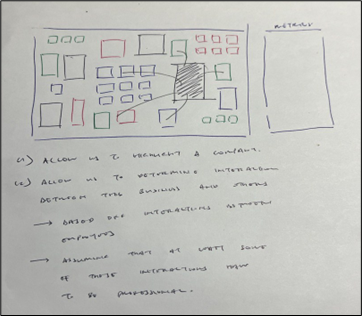 METRICS
(1) ALLOW US TO REPRESENT A COMPANY.
(2) ALLOW US TO DETERMINE INTERACTION
BETWEEN THIS BUSINESS AND OTHERS
→ BASED OFF INTERACTIONS BETWEEN
EMPLOYEES
→ ASSUMING THAT AT LEAST SOME
OF THESE INTERACTIONS HAVE
TO BE PROFESSIONAL.